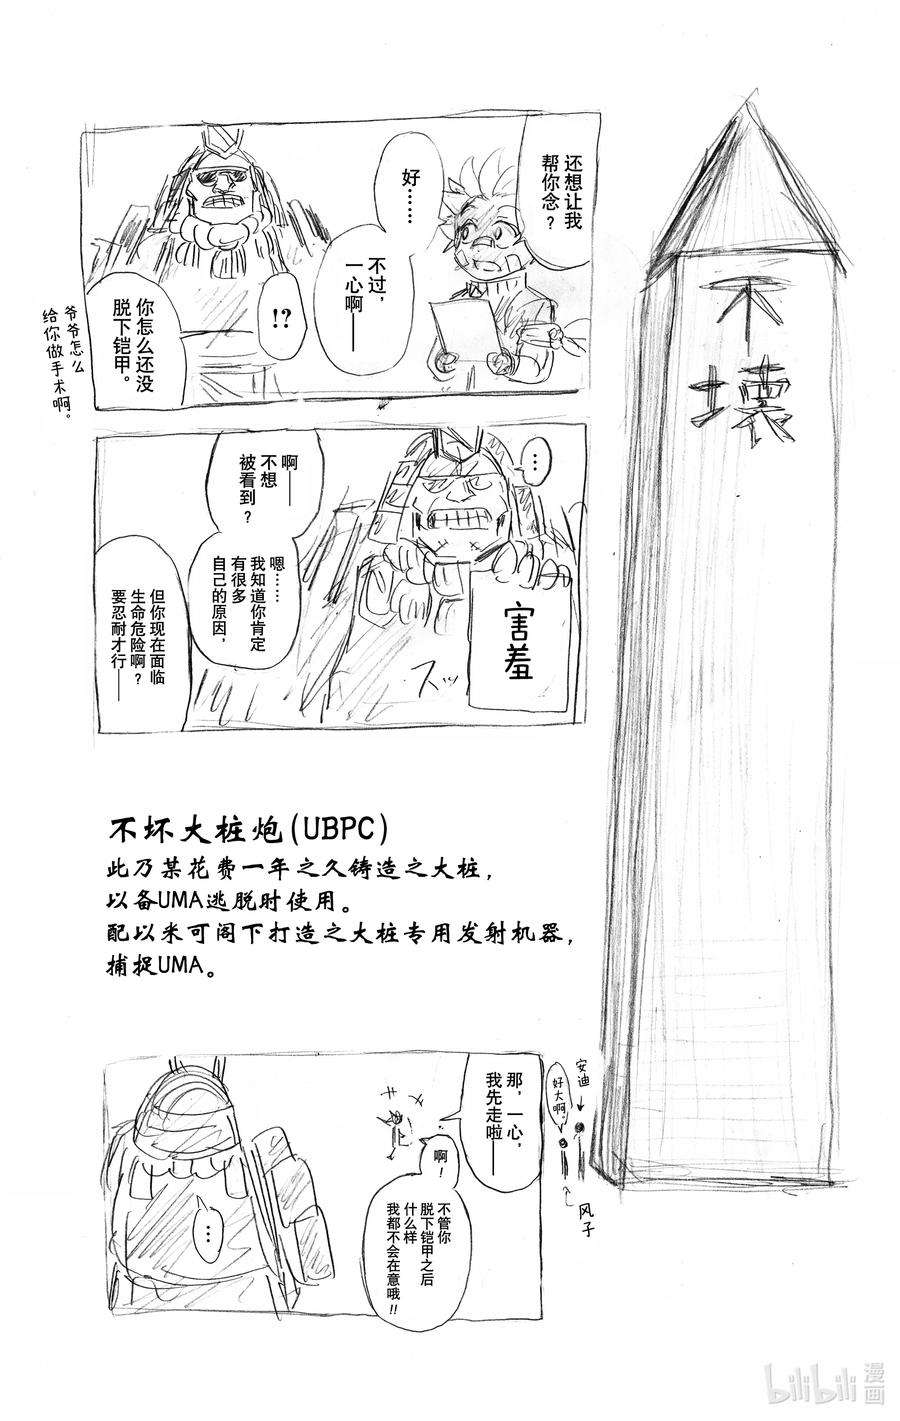 还想让我
帮你念？
好……
不过，
一心啊——
!?
你怎么还没
脱下铠甲。
爷爷怎么
给你做手术啊。
不
壞
…
啊——
不想
被看到？
嗯……
我知道你肯定
有很多
自己的原因，
但你现在面临
生命危险啊？
要忍耐才行——
害羞
スッ
不坏大桩炮(UBPC)
此乃某花费一年之久铸造之大桩，
以备UMA逃脱时使用。
配以米可阁下打造之大桩专用发射机器，
捕捉UMA。
那，一心，
我先走啦——
啊！
不管你
脱下铠甲之后
什么样
我都不会在意哦!!
…
安迪
好大啊。
风子
bilibili 漫画